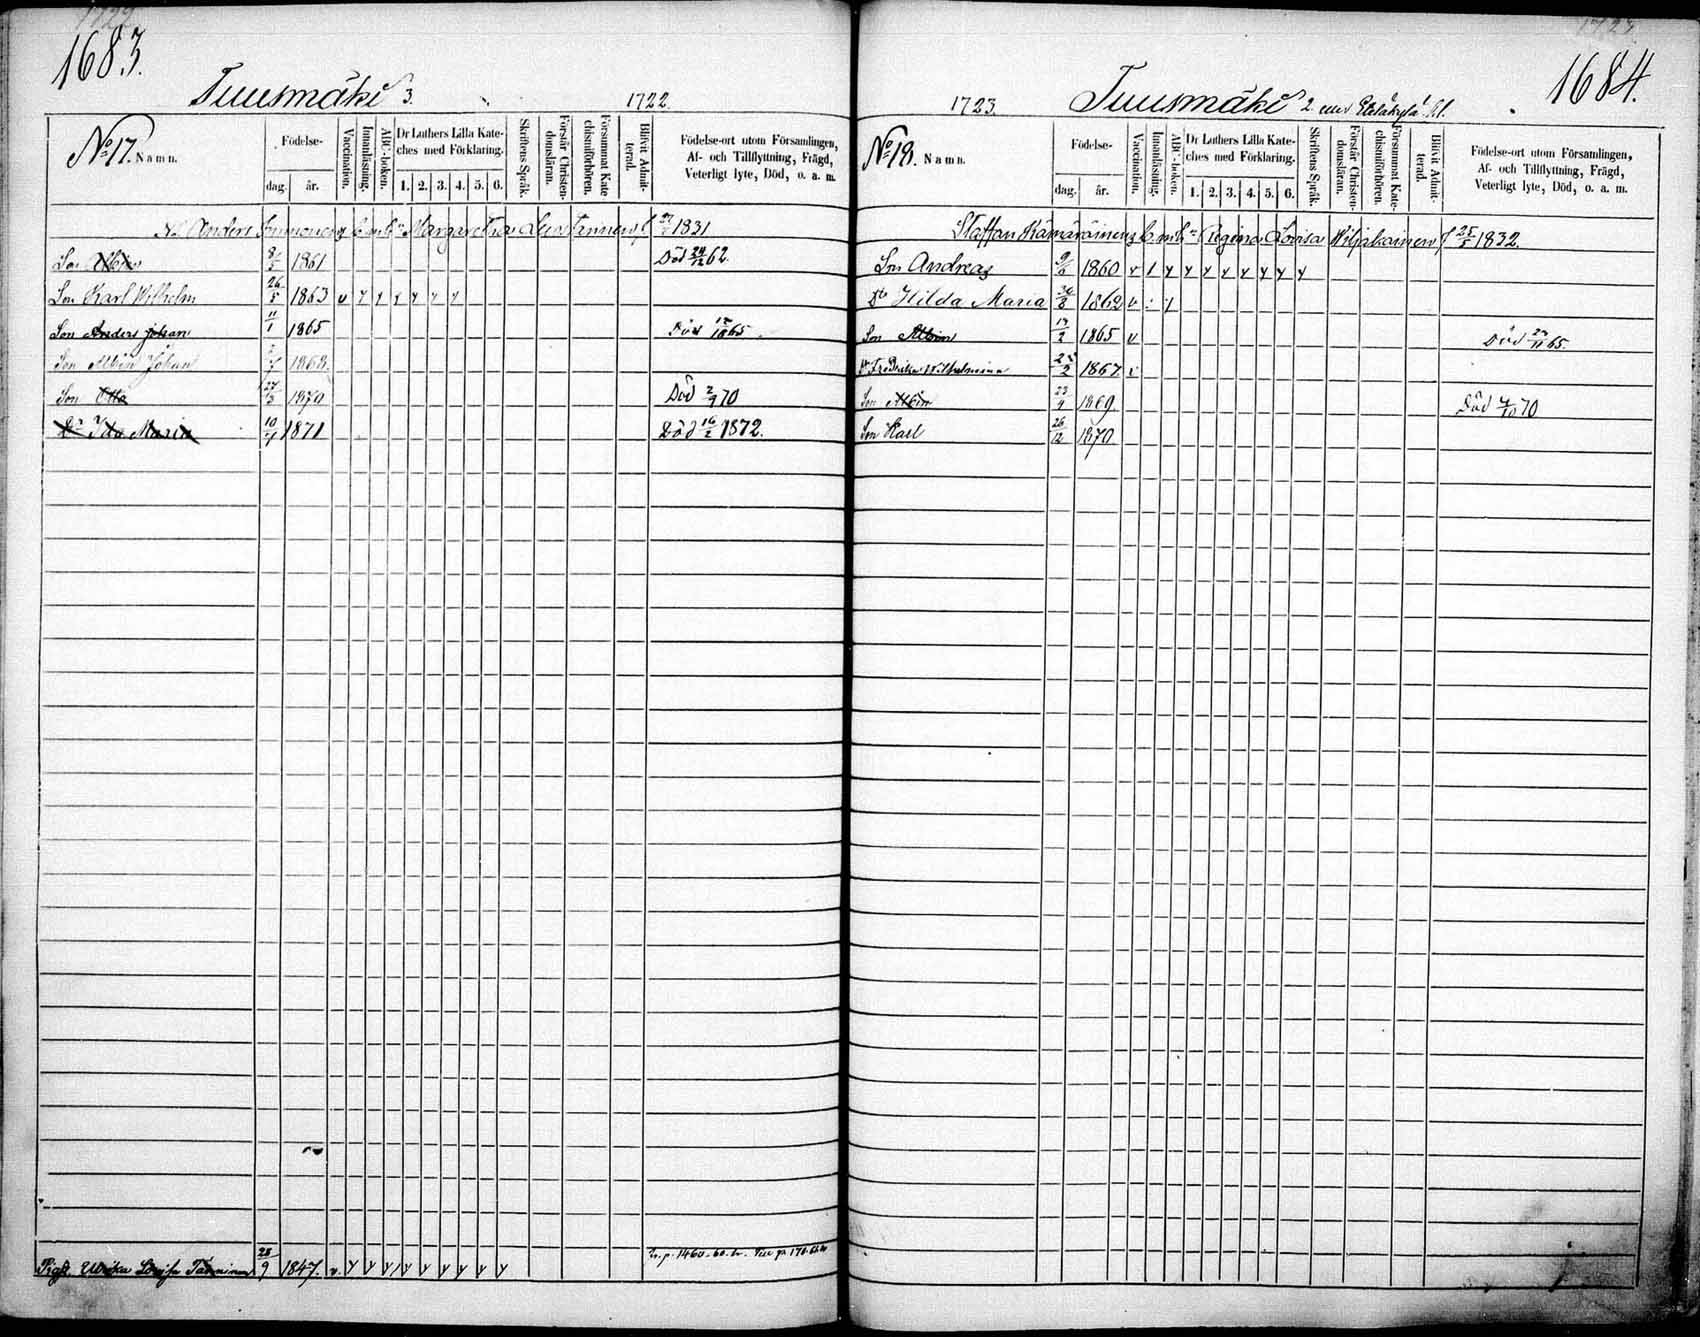 1722
1683.
Tuusmäki 3.
1722.
No 17. Namn.
Födelse-
dag. år.
Vaccination.
Innanläsning.
ABC-boken.
Dr Luthers Lilla Kate-
ches med Förklaring.
1. 2. 3. 4. 5. 6.
Skriftens Språk.
Förstår Christen-
domsläran.
Försummat Kate
chismiförhören.
Blifvit Admit-
terad.
Födelse-ort utom Församlingen,
Af- och Tillflyttning, Frägd,
Veterligt lyte, Död, o. a. m.
Anders Immonens Margaretha Tanninen f 1831
Son Albin 8/3 1861 Död 24/12 62.
Son Karl Wilhelm 26/5 1863 v y y y y y y
Son Anders Johan 11/1 1865 Död 65.
Son Albin Johan 1868
Son Otto 1870 Död 2/9 70
Dr Ida Maria 10/7 1871 Död 16/2 1872.
Pig. Ulrika Lovisa Tanninen 28/9 1847. v. y y y y y y y y y
1723
1684.
1723. Tuusmäki 2.
No 18. Namn.
Födelse-
dag. år.
Vaccination.
Innanläsning.
ABC-boken.
Dr Luthers Lilla Kate-
ches med Förklaring.
1. 2. 3. 4. 5. 6.
Skriftens Språk.
Förstår Christen-
domsläran.
Försummat Kate-
chismiförhören.
Blifvit Admit-
terad.
Födelse-ort utom Församlingen,
Af- och Tillflyttning, Frägd,
Veterligt lyte, Död, o. a. m.
Staffan Kämäräinens Regina Lovisa Wiljakainen f 25/5 1832.
Son Andreas 9/6 1860 v 1 y y y y y y y y
Dr Hilda Maria 30/8 1862 v : y
Son Albin 13/2 1865 v Död 65.
Dr Fredrika Wilhelmina 1867 v
Son Albin 23/4 1869 Död 70
Son Karl 26/12 1870